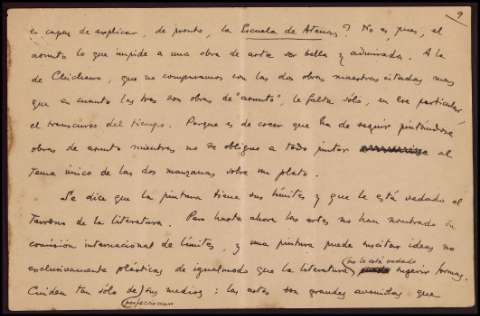 9
es capaz de explicar, de pronto, la Escuela de Atenas? No es, pues, el
asunto lo que impide a una obra de arte ser bella y admirada. A la
de Chicharro, que no comparamos con las dos obras maestras citadas mas
que en cuanto las tres son obras de "asunto", le falta sólo, en ese particular,
el transcurso del tiempo. Porque es de creer que ha de seguir pintándose
obras de asunto mientras no se obligue a todo pintor al
tema único de las dos manzanas sobre un plato.
Se dice que la pintura tiene sus límites y que le está vedado el
terreno de la literatura. Pero hasta ahora las artes no han nombrado su
comisión internacional de límites, y una pintura puede suscitar ideas no
exclusivamente plásticas de igual modo que la literatura no le está vedado sugerir formas.
Cuiden tan sólo de perfeccionar sus medios: las artes son grandes avenidas que